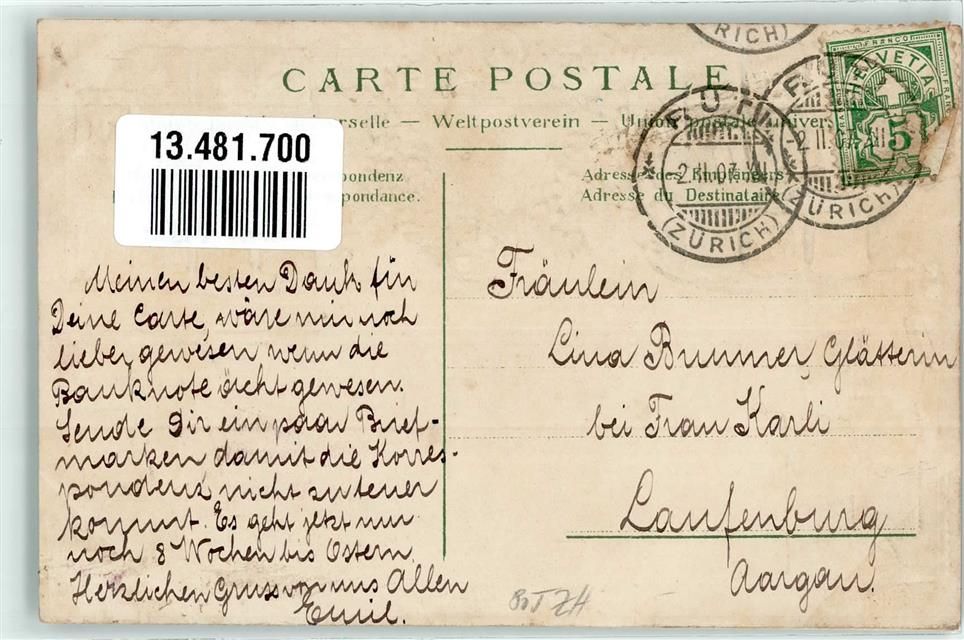 RICH)
CARTE POSTALE
13.481.700
erselle — Weltpostverein — Union postale univers
pondenz
pondance.
Adresse des Empfängers
Adresse du Destinataire
RÜTI
2.II.07.XII
(ZÜRICH)
RÜTI
2.II.07.XII
(ZÜRICH)
FRANCO
HELVETIA
5
Meinen besten Dank für
Deine Carte, wäre mir noch
lieber gewesen wenn die
Banknote ächt gewesen.
Sende Dir ein paar Brief-
marken damit die Korres-
pondenz nicht zu teuer
kommt. Es geht jetzt nur
noch 8 Wochen bis Ostern.
Herzlichen Gruss von uns Allen
Emil.
Fräulein
Lina Brunner, Glätterin
bei Frau Karli
Laufenburg
Aargau.
ZH